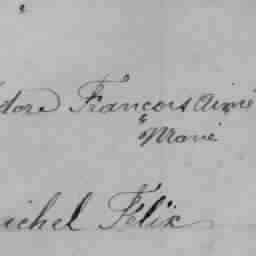 dore Francois Aimé
& Marie
ichel Félix